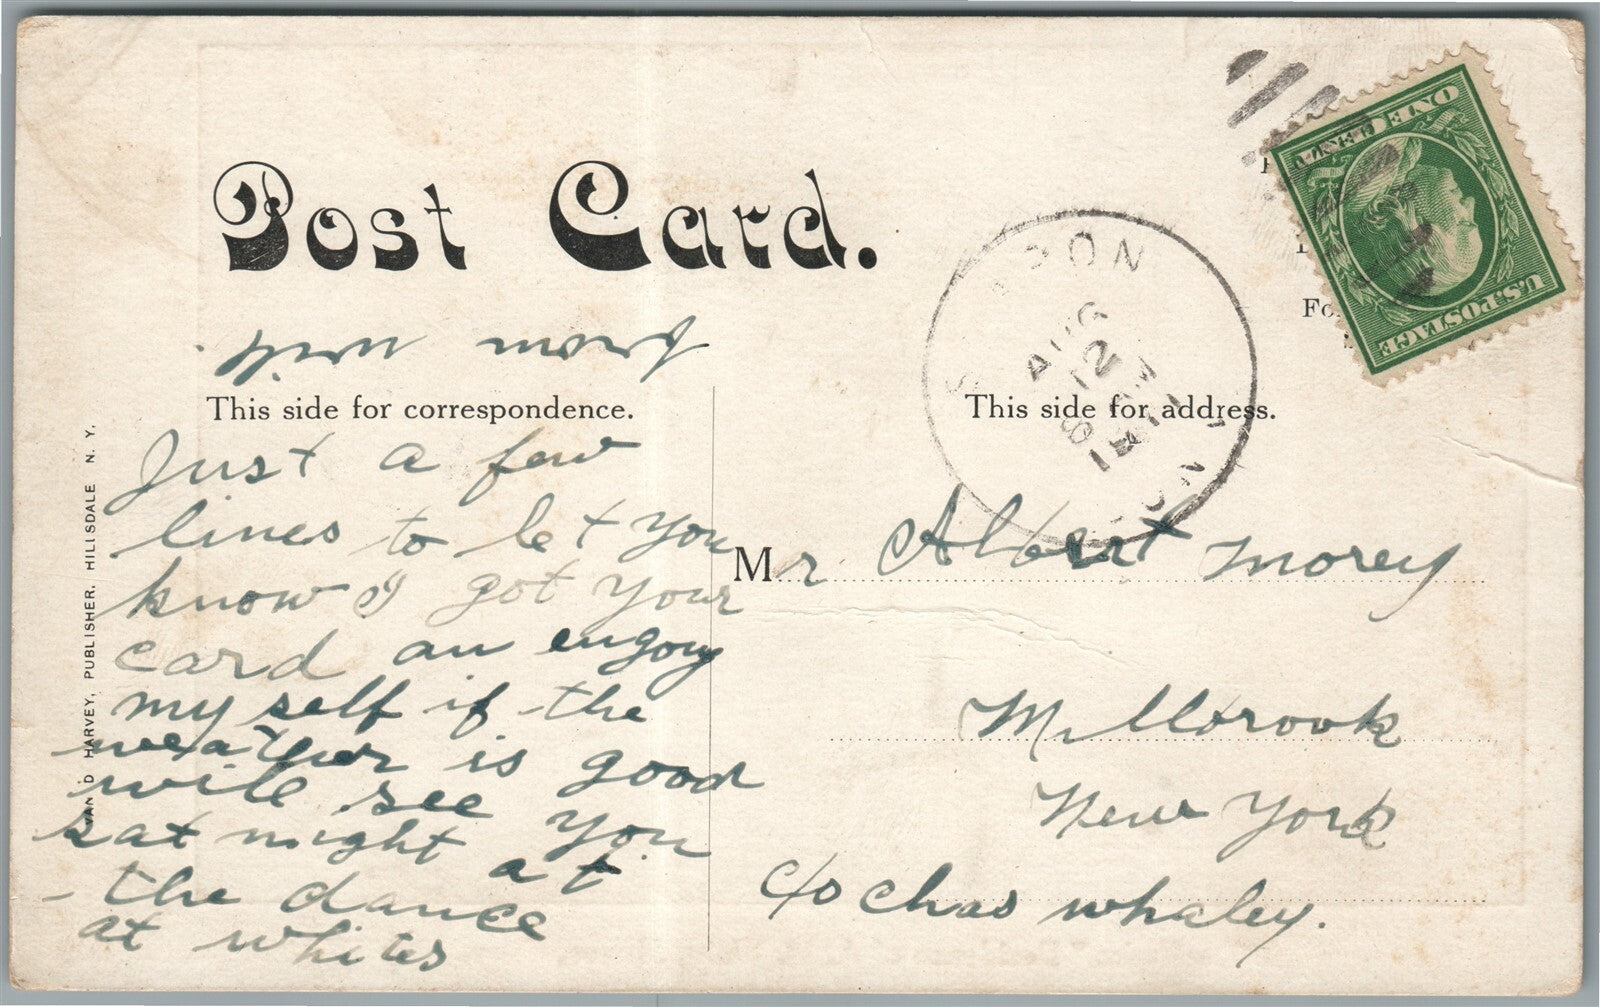 Post Card.
from
This side for correspondence.
Just a few
lines to let you
know I got your
card an engoy
my self if the
weather is good
will see you
sat night at
the dance
at whites
VAN D HARVEY, PUBLISHER, HILLSDALE N. Y.
This side for address.
AUG
12
8 AM
1911
N.Y.
ONE CENT
U.S. POSTAGE
Mr Albert morey
Millbrook
New York
c/o Chas whaley.